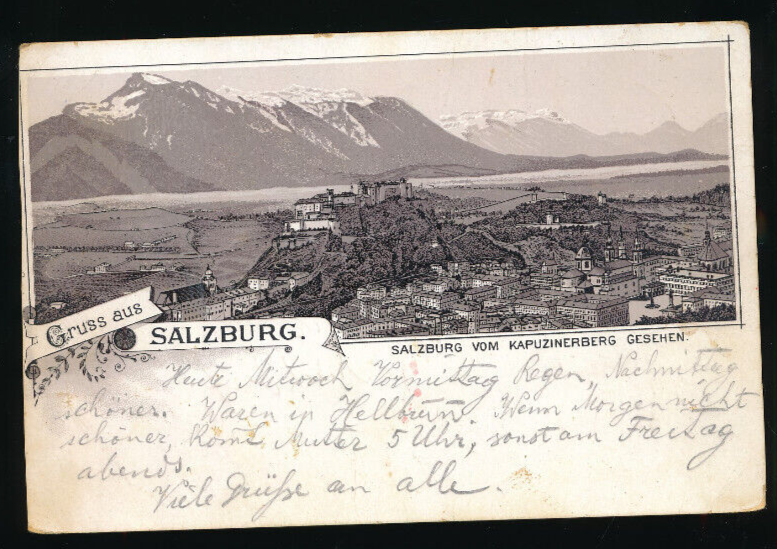 Gruss aus
SALZBURG.
SALZBURG VOM KAPUZINERBERG GESEHEN.
Heute Mitwoch Vormittag Regen, Nachmittag
schöner. Waren in Hellbrun. Wenn Morgen nicht
schöner, komt Mutter 5 Uhr, sonst am Freitag
abends.
Viele Grüße an alle.